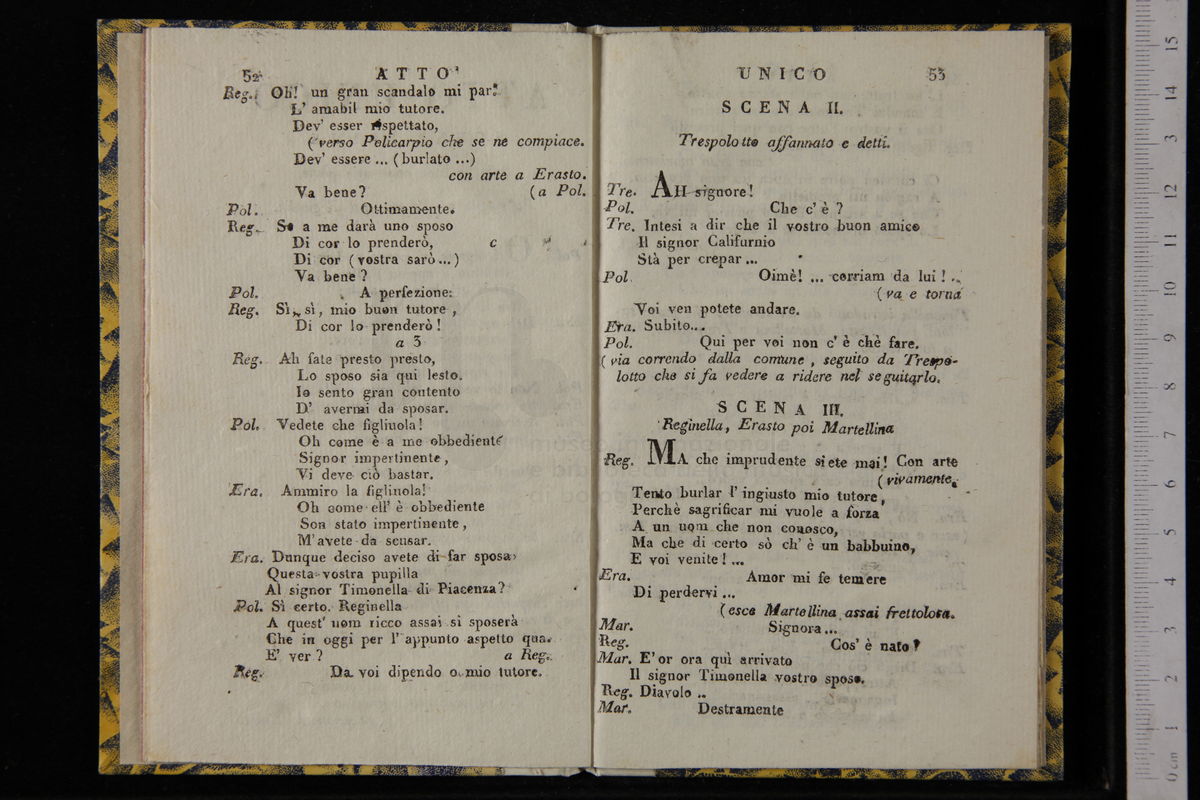 52 ATTO
Reg. Oh! un gran scandalo mi par:
L' amabil mio tutore.
Dev' esser rispettato,
(verso Policarpio che se ne compiace.
Dev' essere ... (burlato ...)
con arte a Erasto.
Va bene? (a Pol.
Pol. Ottimamente.
Reg. Se a me darà uno sposo
Di cor lo prenderò,
Di cor (vostra sarò...)
Va bene?
Pol. A perfezione:
Reg. Sì, sì, mio buon tutore,
Di cor lo prenderò!
a 3
Reg. Ah fate presto presto,
Lo sposo sia qui lesto.
Io sento gran contento
D' avermi da sposar.
Pol. Vedete che figliuola!
Oh come è a me obbediente
Signor impertinente,
Vi deve ciò bastar.
Era. Ammiro la figliuola!
Oh come ell' è obbediente
Son stato impertinente,
M'avete da scusar.
Era. Dunque deciso avete di far sposa
Questa vostra pupilla
Al signor Timonella di Piacenza?
Pol. Sì certo. Reginella
A quest' uom ricco assai si sposerà
Che in oggi per l' appunto aspetto qua.
E' ver? a Reg.
Reg. Da voi dipendo o mio tutore.
UNICO 53
SCENA II.
Trespolotto affannato e detti.
Tre. AH signore!
Pol. Che c' è ?
Tre. Intesi a dir che il vostro buon amico
Il signor Califurnio
Stà per crepar ...
Pol. Oimè! ... corriam da lui ! ..
(va e torna
Voi ven potete andare.
Era. Subito...
Pol. Qui per voi non c' è chè fare.
(via correndo dalla comune, seguito da Trespo-
lotto che si fa vedere a ridere nel seguitarlo.
SCENA III.
Reginella, Erasto poi Martellina
Reg. MA che imprudente siete mai! Con arte
(vivamente.
Tento burlar l' ingiusto mio tutore,
Perchè sagrificar mi vuole a forza
A un uom che non conosco,
Ma che di certo sò ch' è un babbuino,
E voi venite! ...
Era. Amor mi fe temere
Di perdervi ...
(esce Martellina assai frettolosa.
Mar. Signora ...
Reg. Cos' è nato?
Mar. E' or ora quì arrivato
Il signor Timonella vostro sposo.
Reg. Diavolo ..
Mar. Destramente